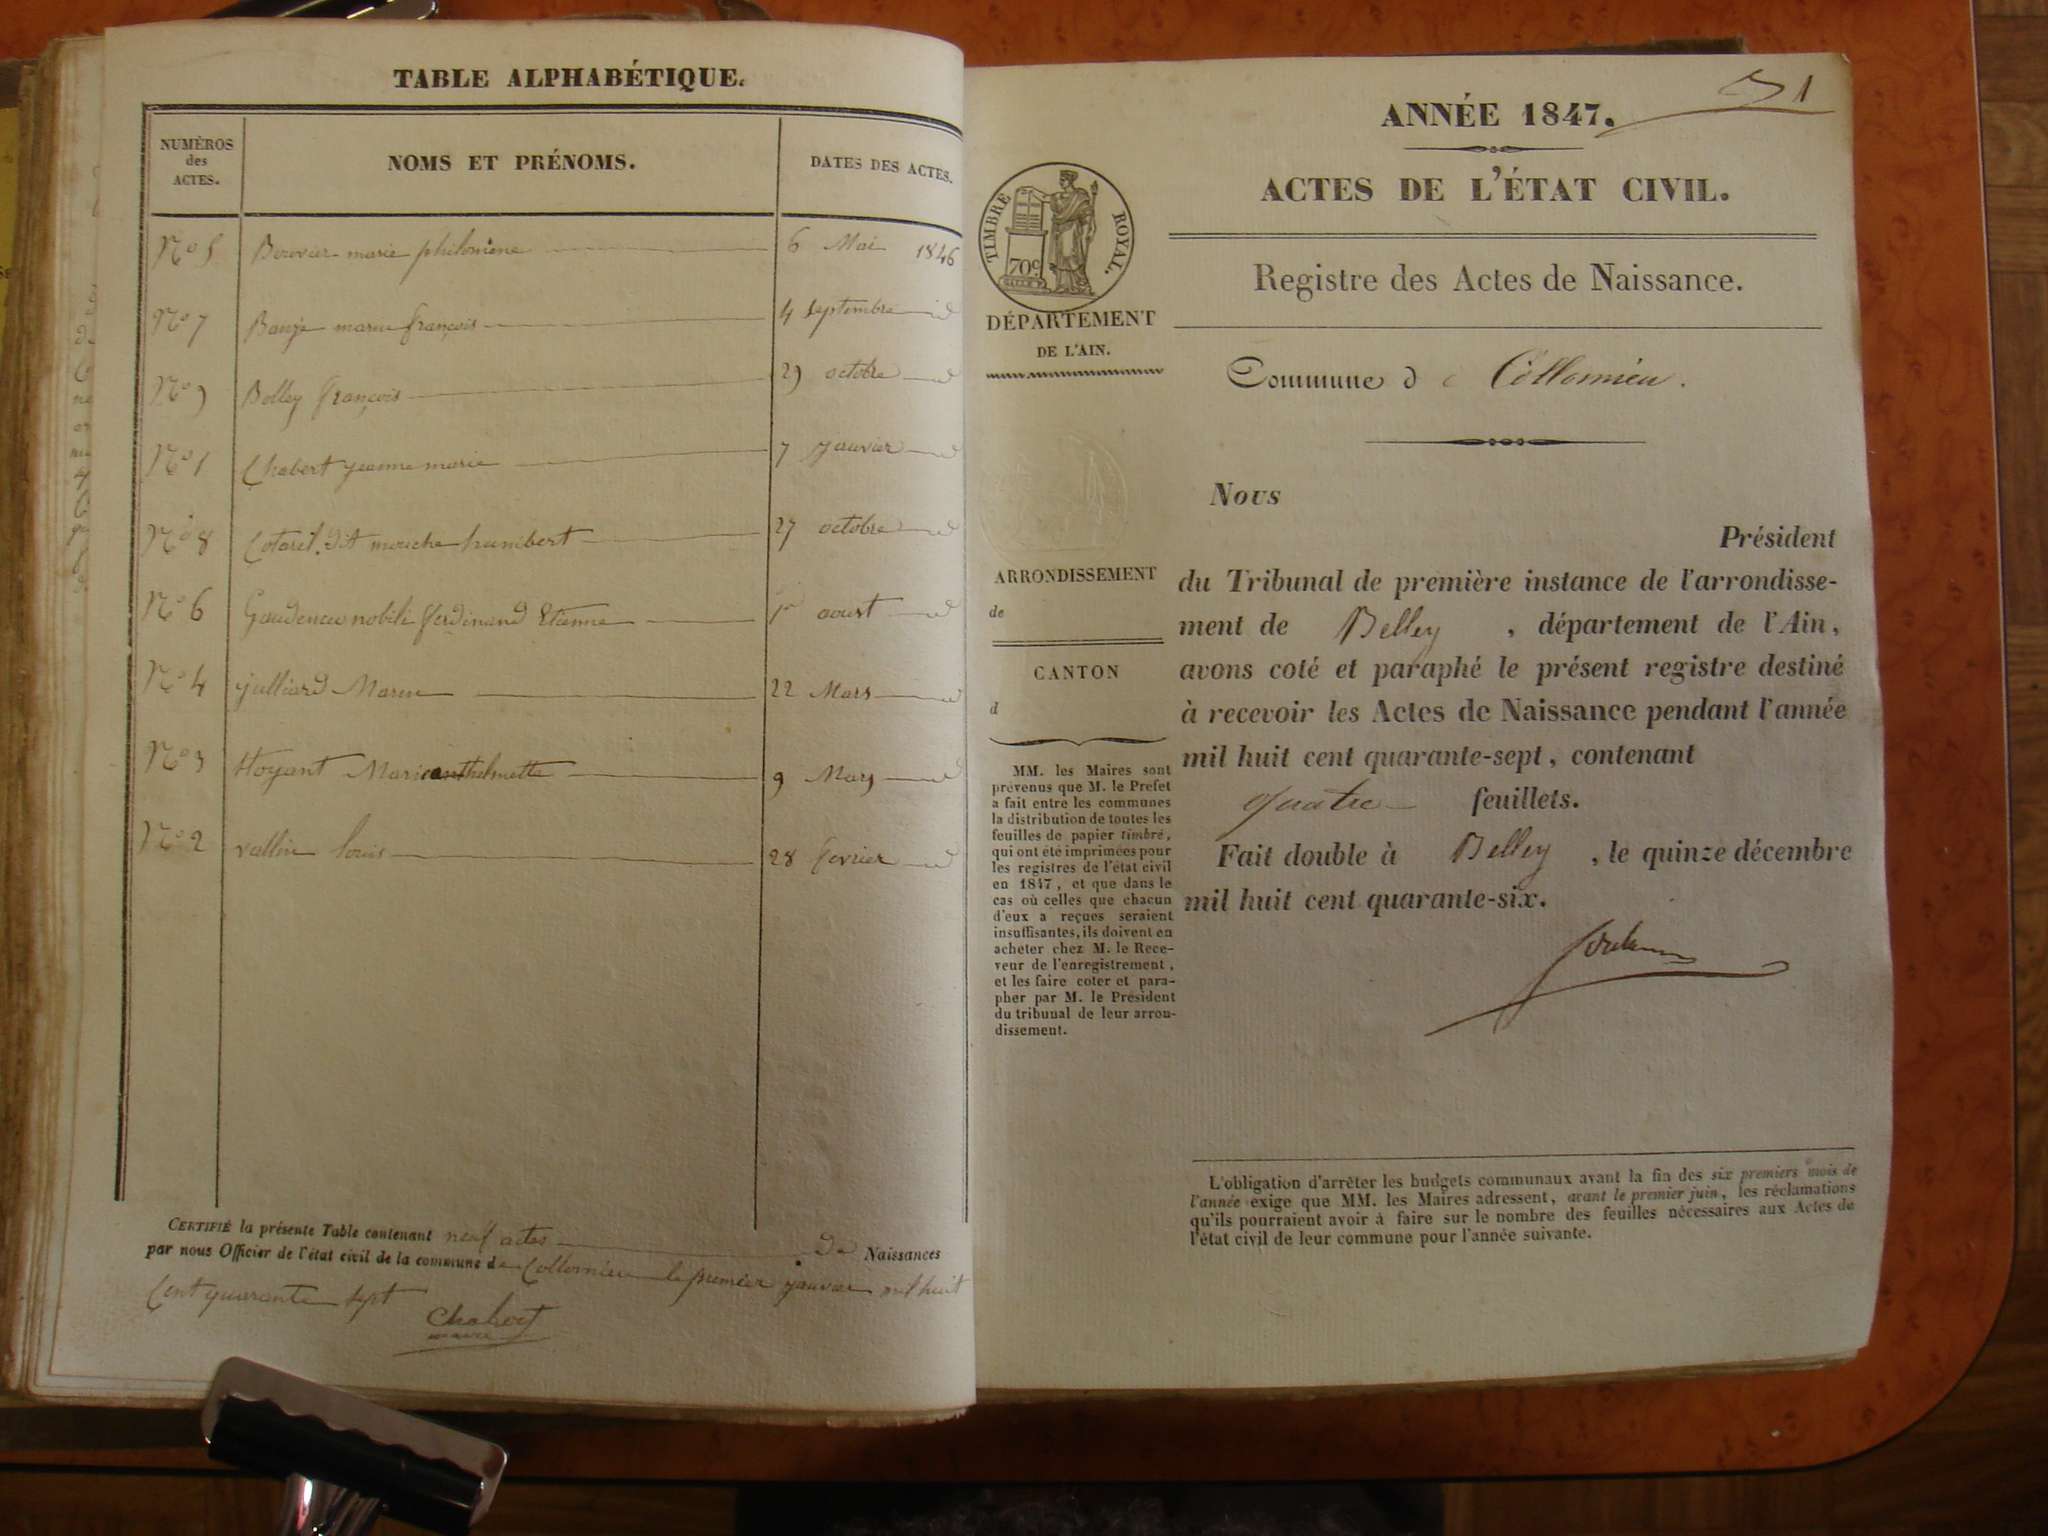 TABLE ALPHABÉTIQUE.
NUMÉROS
des
ACTES.
NOMS ET PRÉNOMS.
DATES DES ACTES.
No 5 marie philomène 6 Mai 1846
No 7 françois 4 septembre id
No 9 Belley françois 29 octobre id
No 1 Chabert jeanne marie 7 janvier id
No 8 dit humbert 27 octobre id
No 6 ferdinand Etienne 1er aoust id
No 4 julliard Marie 22 Mars id
No 3 Marie anthelmette 9 Mars id
No 2 vallin louis 28 fevrier id
CERTIFIÉ la présente Table contenant neuf actes de Naissances
par nous Officier de l'état civil de la commune de Collomieu le premier janvier mil huit
Cent quarante sept
Chabert
maire
1
ANNÉE 1847.
ACTES DE L'ÉTAT CIVIL.
TIMBRE ROYAL.
70c
Registre des Actes de Naissance.
DÉPARTEMENT
DE L'AIN.
Commune de Collomieu.
ARRONDISSEMENT
de
CANTON
d
MM. les Maires sont
prévenus que M. le Préfet
a fait entre les communes
la distribution de toutes les
feuilles de papier timbré,
qui ont été imprimées pour
les registres de l'état civil
en 1847, et que dans le
cas où celles que chacun
d'eux a reçues seraient
insuffisantes, ils doivent en
acheter chez M. le Rece-
veur de l'enregistrement,
et les faire coter et para-
pher par M. le Président
du tribunal de leur arron-
dissement.
Nous
Président
du Tribunal de première instance de l'arrondisse-
ment de Belley, département de l'Ain,
avons coté et paraphé le présent registre destiné
à recevoir les Actes de Naissance pendant l'année
mil huit cent quarante-sept, contenant
quatre feuillets.
Fait double à Belley, le quinze décembre
mil huit cent quarante-six.
L'obligation d'arrêter les budgets communaux avant la fin des six premiers mois de
l'année exige que MM. les Maires adressent, avant le premier juin, les réclamations
qu'ils pourraient avoir à faire sur le nombre des feuilles nécessaires aux Actes de
l'état civil de leur commune pour l'année suivante.